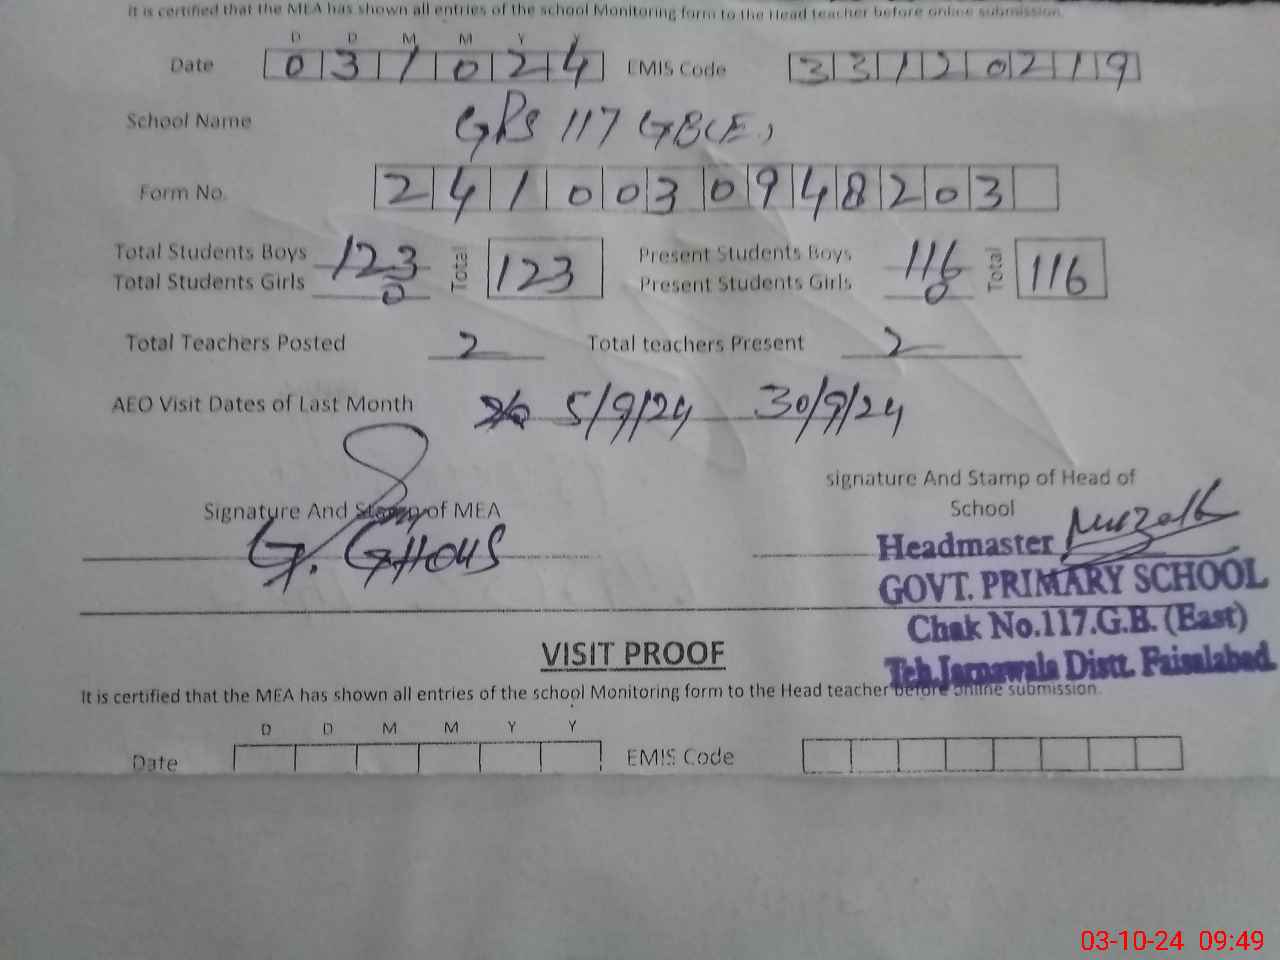 It is certified that the MEA has shown all entries of the school Monitoring form to the Head teacher before online submission.
D D M M Y Y
Date 0 3 1 0 2 4 EMIS Code 3 3 1 2 0 2 1 9
School Name GPS 117 GB(E)
Form No. 2 4 1 0 0 3 0 9 4 8 2 0 3
Total Students Boys 123 Total 123 Present Students Boys 116 Total 116
Total Students Girls 0 Present Students Girls 0
Total Teachers Posted 2 Total teachers Present 2
AEO Visit Dates of Last Month 5/9/24 30/9/24
signature And Stamp of Head of
School
Signature And Stamp of MEA
G. GHOUS
Headmaster
GOVT. PRIMARY SCHOOL
Chak No.117.G.B. (East)
Teh.Jarnawala Distt. Faisalabad.
VISIT PROOF
It is certified that the MEA has shown all entries of the school Monitoring form to the Head teacher before online submission.
D D M M Y Y
Date EMIS Code
03-10-24 09:49